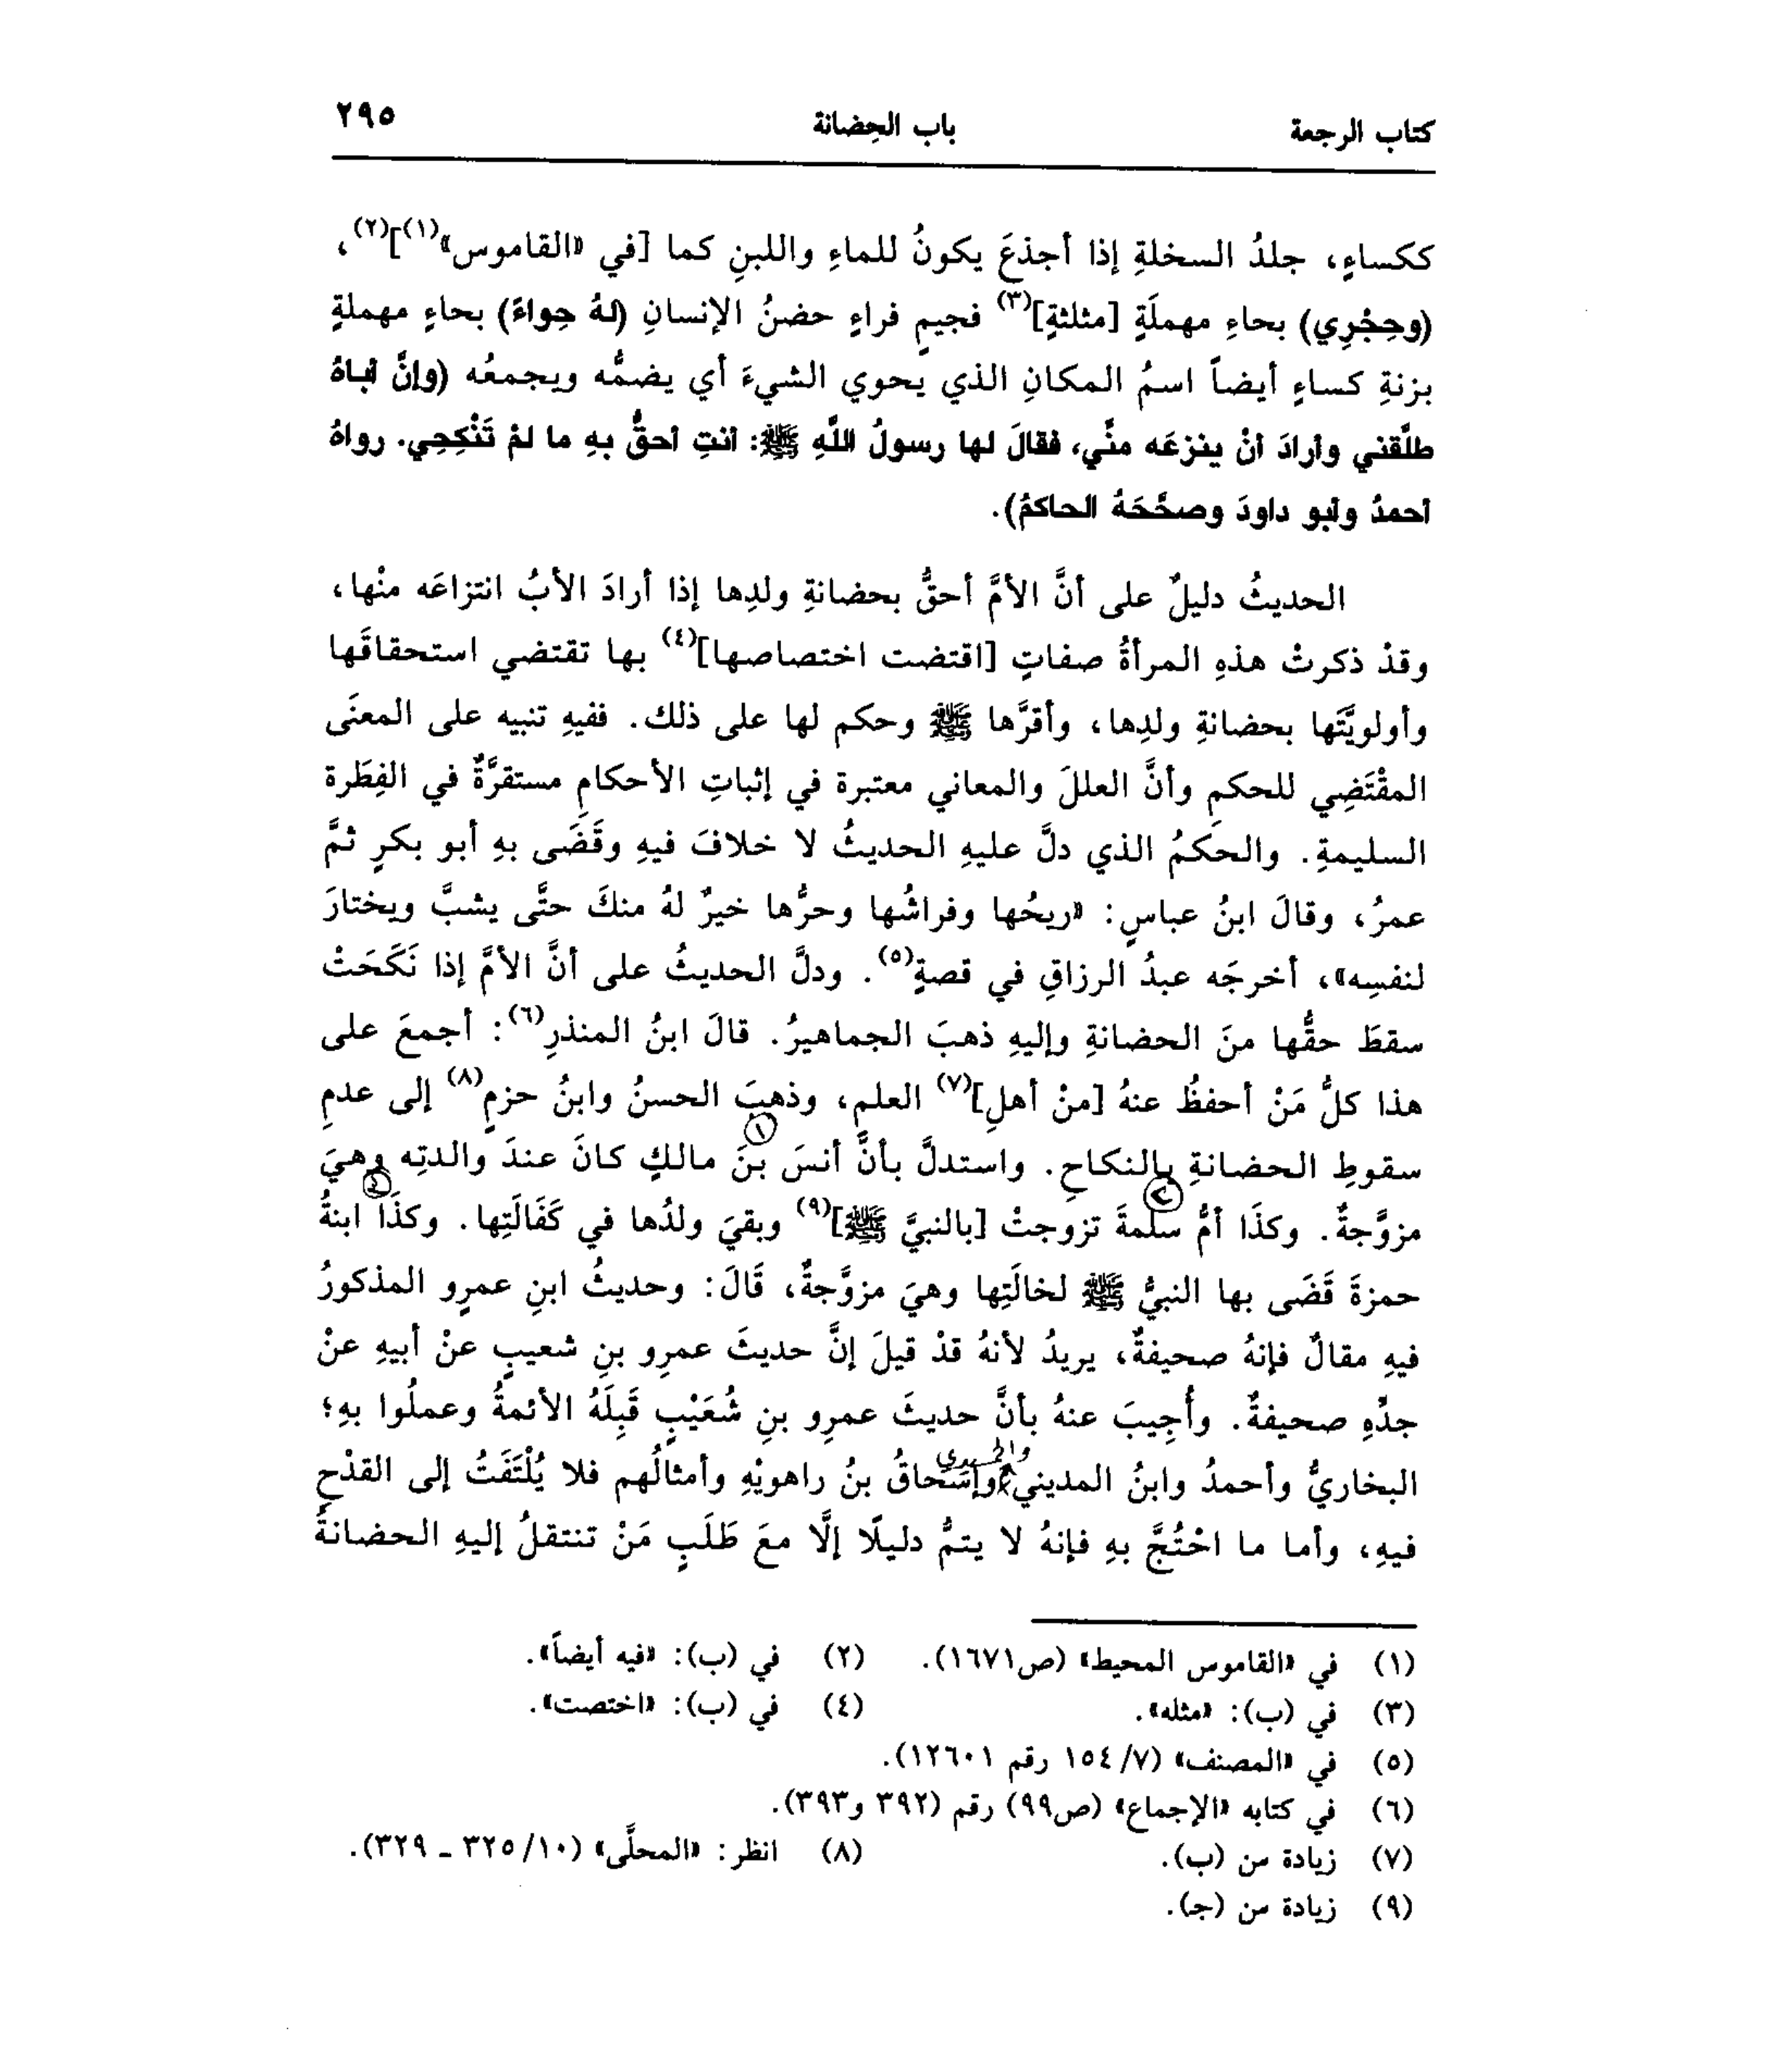 كتاب الرجعة باب الحِضانة ٢٩٥
ككساءٍ، جلدُ السخلةِ إذا أجذعَ يكونُ للماءِ واللبنِ كما [في «القاموس»(١)](٢)،
(وحِجْرِي) بحاءِ مهملَةٍ [مثلثةٍ](٣) فجيمٍ فراءٍ حضنُ الإنسانِ (لهُ حِواءً) بحاءٍ مهملةٍ
بزنةِ كساءٍ أيضاً اسمُ المكانِ الذي يحوي الشيءَ أي يضمُّه ويجمعُه (وإنَّ أباهُ
طلَّقني وأرادَ أنْ ينزعَه منِّي، فقالَ لها رسولُ اللَّهِ ﷺ: أنتِ أحقُّ بهِ ما لمْ تَنْكِحِي. رواهُ
أحمدُ وأبو داودَ وصحَّحَهُ الحاكمُ).
الحديثُ دليلٌ على أنَّ الأمَّ أحقُّ بحضانةِ ولدِها إذا أرادَ الأبُ انتزاعَه منْها،
وقدْ ذكرتْ هذهِ المرأةُ صفاتٍ [اقتضت اختصاصها](٤) بها تقتضي استحقاقَها
وأولويَّتَها بحضانةِ ولدِها، وأقرَّها ﷺ وحكم لها على ذلك. ففيهِ تنبيه على المعنَى
المقْتَضِي للحكمِ وأنَّ العللَ والمعاني معتبرة في إثباتِ الأحكامِ مستقرَّةٌ في الفِطَرة
السليمةِ. والحكمُ الذي دلَّ عليهِ الحديثُ لا خلافَ فيهِ وقَضَى بهِ أبو بكرٍ ثمَّ
عمرُ، وقالَ ابنُ عباسٍ: «ريحُها وفراشُها وحرُّها خيرٌ لهُ منكَ حتَّى يشبَّ ويختارَ
لنفسِه»، أخرجَه عبدُ الرزاقِ في قصةٍ(٥). ودلَّ الحديثُ على أنَّ الأمَّ إذا نَكَحَتْ
سقطَ حقُّها منَ الحضانةِ وإليهِ ذهبَ الجماهيرُ. قالَ ابنُ المنذرِ(٦): أجمعَ على
هذا كلُّ مَنْ أحفظُ عنهُ [منْ أهلِ](٧) العلمِ، وذهبَ الحسنُ وابنُ حزمٍ(٨) إلى عدمِ
سقوطِ الحضانةِ بالنكاحِ. واستدلَّ بأنَّ أنسَ بنَ مالكٍ كانَ عندَ والدتِه وهيَ
مزوَّجةٌ. وكذَا أمُّ سلمةَ تزوجتْ [بالنبيَّ ﷺ](٩) وبقيَ ولدُها في كَفَالَتِها. وكذَا ابنةُ
حمزةَ قَضَى بها النبيُّ ﷺ لخالَتِها وهيَ مزوَّجةٌ، قَالَ: وحديثُ ابنِ عمرٍو المذكورُ
فيهِ مقالٌ فإنهُ صحيفةٌ، يريدُ لأنهُ قدْ قيلَ إنَّ حديثَ عمرِو بنِ شعيبٍ عنْ أبيهِ عنْ
جدِّهِ صحيفةٌ. وأُجِيبَ عنهُ بأنَّ حديثَ عمرِو بنِ شُعَيْبٍ قَبِلَهُ الأئمةُ وعملُوا بهِ؛
والحميدي
البخاريُّ وأحمدُ وابنُ المديني وإسْحاقُ بنُ راهويْهِ وأمثالُهم فلا يُلْتَفَتُ إلى القدْحِ
فيهِ، وأما ما احْتُجَّ بهِ فإنهُ لا يتمُّ دليلًا إلَّا معَ طَلَبٍ مَنْ تنتقلُ إليهِ الحضانةُ
(١) في «القاموس المحيط» (ص١٦٧١). (٢) في (ب): «فيه أيضاً».
(٣) في (ب): «مثله». (٤) في (ب): «اختصت».
(٥) في «المصنف» (٧/ ١٥٤ رقم ١٢٦٠١).
(٦) في كتابه «الإجماع» (ص٩٩) رقم (٣٩٢ و٣٩٣).
(٧) زيادة من (ب). (٨) انظر: «المحلَّى» (١٠/ ٣٢٥ - ٣٢٩).
(٩) زيادة من (جـ).